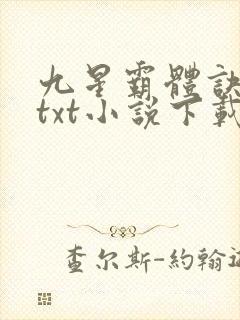 九星霸體訣
txt小説下載
查尔斯-約翰遜